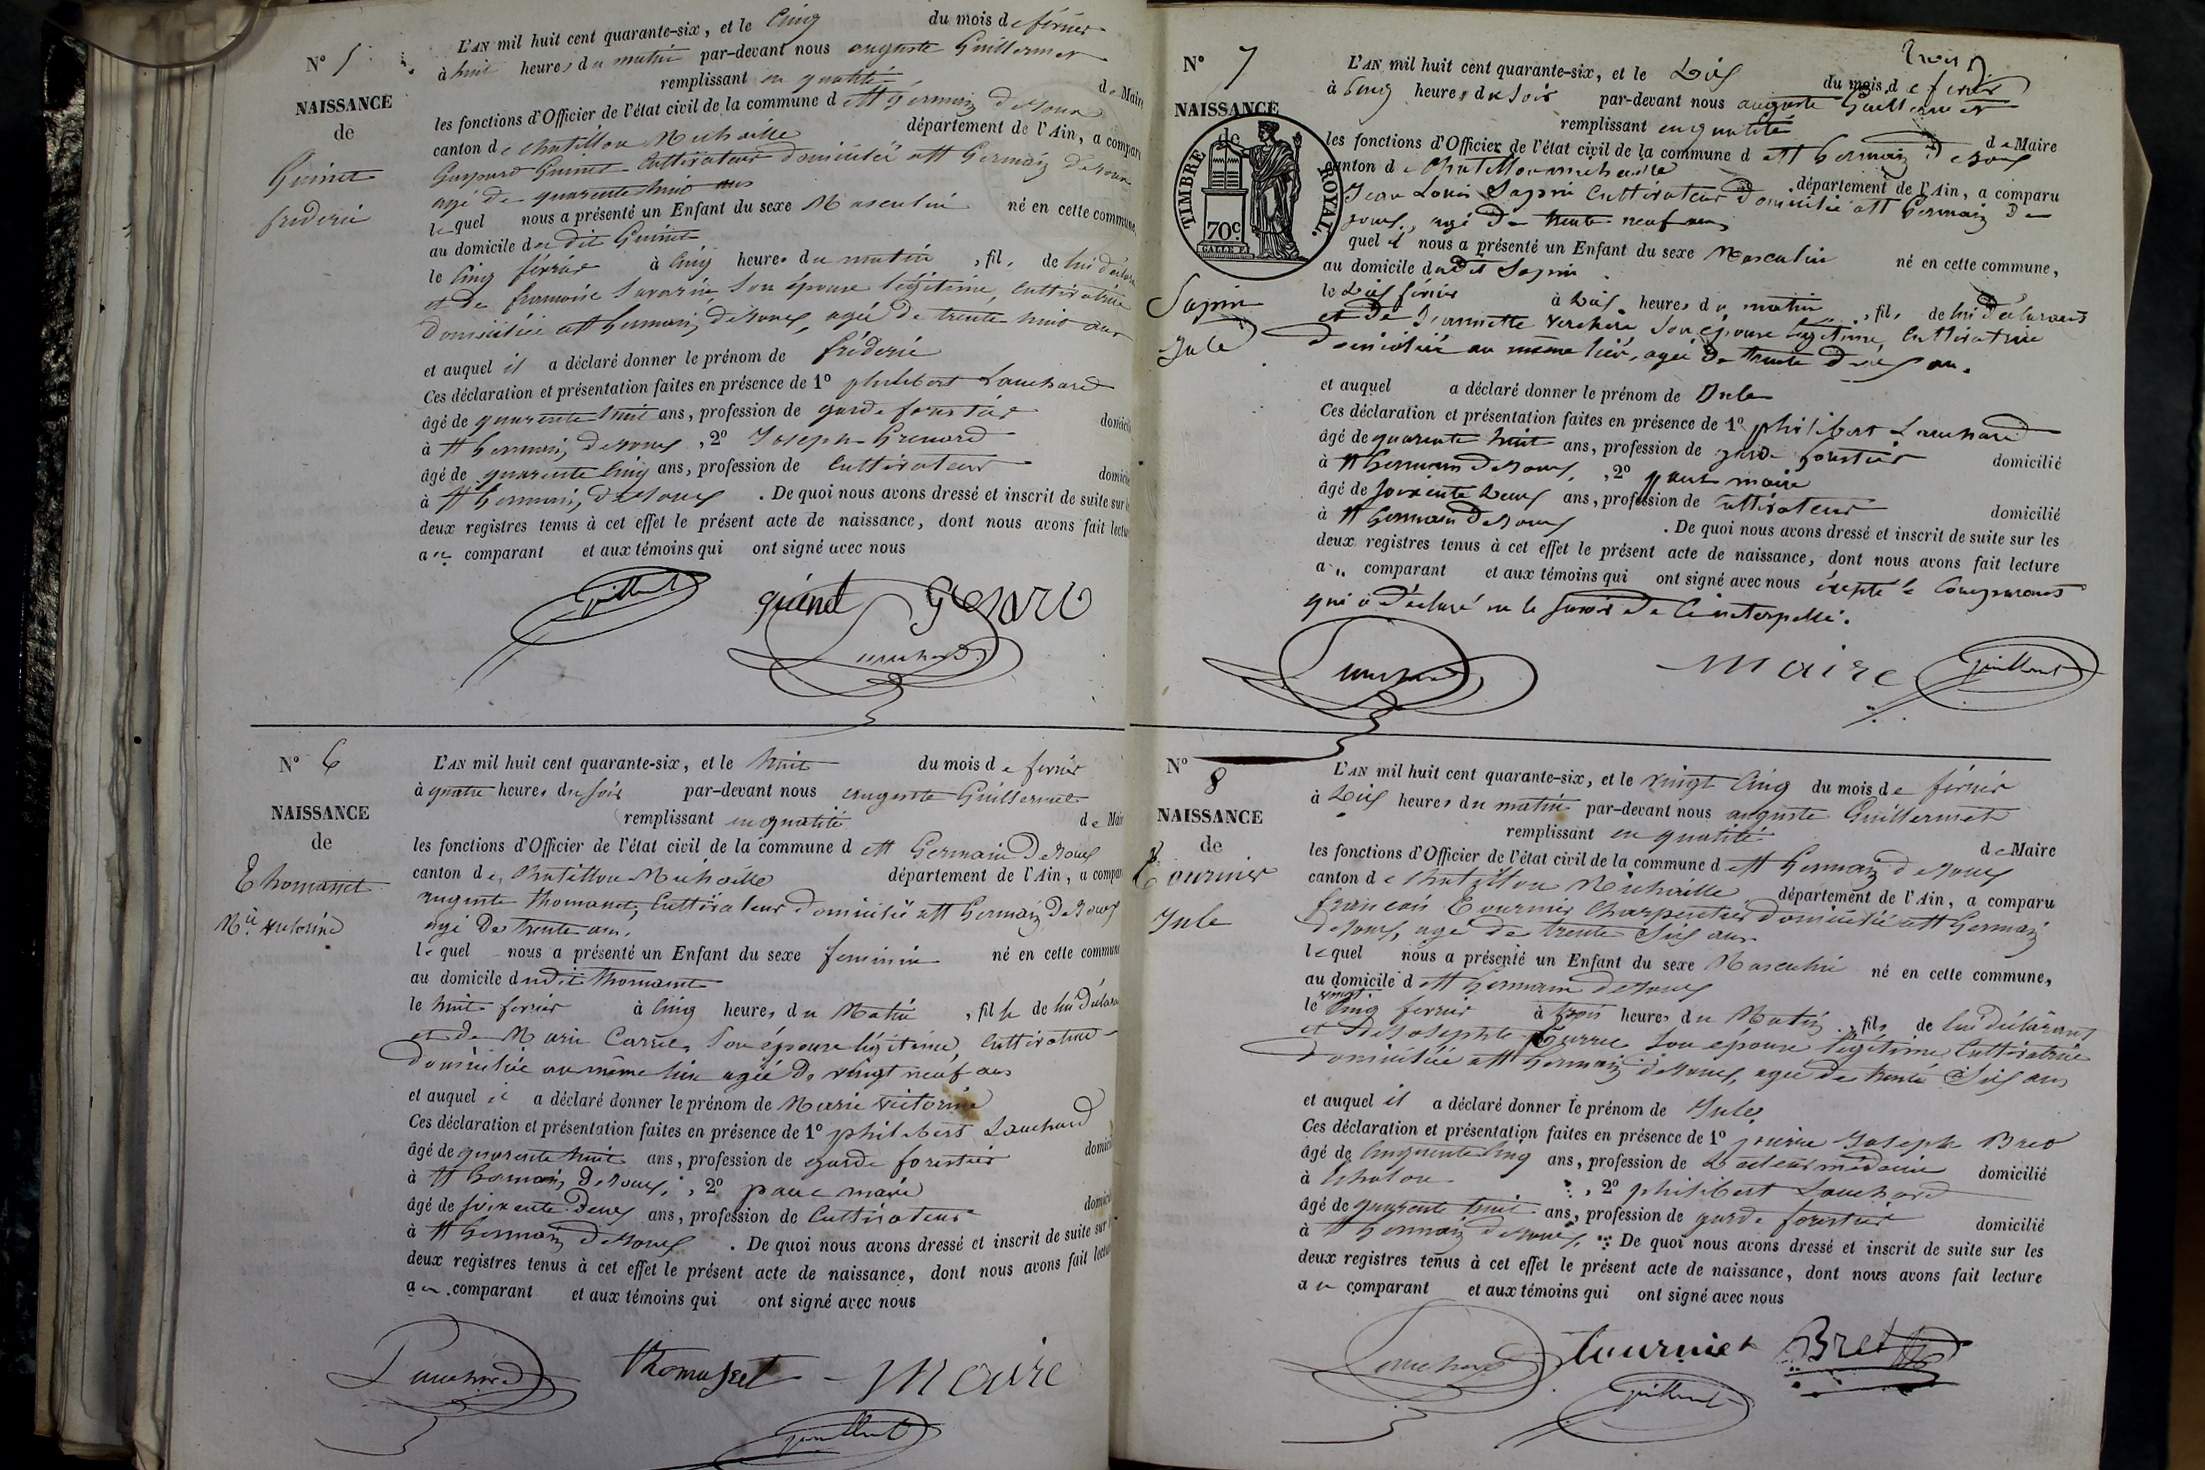 N° 5
NAISSANCE
de
Guinet
fréderic
L'AN mil huit cent quarante-six, et le Cinq du mois de février
à huit heures du matin par-devant nous auguste Guillermet
remplissant en qualité de Maire
les fonctions d'Officier de l'état civil de la commune d e St Germain de Joux
canton de Chatillon Michaille département de l'Ain, a compar
Gaspard Guinet Cultivateur domicilié a St Germain de Joux
agé de quarante huit ans
lequel nous a présenté un Enfant du sexe Masculin né en cette commune,
au domicile du dit Guinet
le Cinq février à Cinq heures du matin, fils de lui déclara
et de francoise Savarin, Son épouse légitime, Cultivatrice
domiciliée a St Germain de Joux, agée de trente huit ans
et auquel il a déclaré donner le prénom de fréderic
Ces déclaration et présentation faites en présence de 1° philibert Lauchard
âgé de quarente huit ans, profession de garde forestier domicilié
à St Germain de Joux, 2° Joseph Grenard
âgé de quarente Cinq ans, profession de Cultivateur domicilié
à St Germain de Joux. De quoi nous avons dressé et inscrit de suite sur les
deux registres tenus à cet effet le présent acte de naissance, dont nous avons fait lecture
au comparant et aux témoins qui ont signé avec nous
guinet
N° 6
NAISSANCE
de
Thomasset
Mie victorine
L'AN mil huit cent quarante-six, et le huit du mois de fevrier
à quatre heures du soir par-devant nous auguste Guillermet
remplissant en qualité de Maire
les fonctions d'Officier de l'état civil de la commune d e St Germain de Joux
canton de Chatillon Michaille département de l'Ain, a compar
auguste thomasset, Cultivateur domicilié a St Germain de Joux
agé de trente ans.
lequel nous a présenté un Enfant du sexe feminin né en cette commune
au domicile dudit thomasset
le huit fevrier à Cinq heures du Matin, fille de lui déclara
et de Marie Son épouse légitime, Cultivatrice
domiciliée au même lieu agée de vingt neuf ans
et auquel il a déclaré donner le prénom de Marie victorine
Ces déclaration et présentation faites en présence de 1° philibert Lauchard
âgé de quarente huit ans, profession de garde forestier domicilié
à St Germain de Joux, 2° paul maire
âgé de soixente deux ans, profession de Cultivateur domicilié
à St Germain de Joux. De quoi nous avons dressé et inscrit de suite sur
deux registres tenus à cet effet le présent acte de naissance, dont nous avons fait lecture
au comparant et aux témoins qui ont signé avec nous
Lauchard thomasset maire
trois
N° 7
NAISSANCE
de
TIMBRE ROYAL.
70c.
Sapin
Jule
L'AN mil huit cent quarante-six, et le Dix du mois de fevrier
à Cinq heures du soir par-devant nous auguste Guillermet
remplissant en qualité de Maire
les fonctions d'Officier de l'état civil de la commune d e St Germain de Joux
canton de Chatillon michaille département de l'Ain, a comparu
Jean Louis Sapin Cultivateur domicilié a St Germain de
Joux, agé de trente neuf ans
quel nous a présenté un Enfant du sexe Masculin né en cette commune,
au domicile du dit Sapin
le Dix févrièr à Dix heures du matin, fils de lui déclarant
et de Jeannette Son épouse légitime, Cultivatrice
domiciliée au même lieu, agée de trente deux ans.
et auquel a déclaré donner le prénom de Jule
Ces déclaration et présentation faites en présence de 1° philibert Lauchard
âgé de quarente huit ans, profession de garde forestier domicilié
à St Germain de Joux, 2° paul maire
âgé de soixente deux ans, profession de Cultivateur domicilié
à St Germain de Joux. De quoi nous avons dressé et inscrit de suite sur les
deux registres tenus à cet effet le présent acte de naissance, dont nous avons fait lecture
au comparant et aux témoins qui ont signé avec nous éxepté le Comparant
qui a déclaré ne le savoir de Ce interpellé.
maire
N° 8
NAISSANCE
de
Tournier
Jule
L'AN mil huit cent quarante-six, et le vingt Cinq du mois de février
à Dix heures du matin par-devant nous auguste Guillermet
remplissant en qualité de Maire
les fonctions d'Officier de l'état civil de la commune d e St Germain de Joux
canton de Chatillon Michaille département de l'Ain, a comparu
francois Tournier Charpentier domicilié a St Germain
de Joux, agé de trente Six ans
lequel nous a présenté un Enfant du sexe Masculin né en cette commune,
au domicile d e St Germain de Joux
le vingt Cinq fevrier à trois heures du Matin, fils de lui déclarant
et de Josephte Son épouse légitime Cultivatrice
domiciliée a St Germain de Joux, agée de trente Six ans
et auquel il a déclaré donner le prénom de Jule
Ces déclaration et présentation faites en présence de 1° pierre Joseph Bret
âgé de Cinquente Cinq ans, profession de Docteur médecin domicilié
à Echalon, 2° philibert Lauchard
âgé de quarente huit ans, profession de garde forestier domicilié
à St Germain de Joux. De quoi nous avons dressé et inscrit de suite sur les
deux registres tenus à cet effet le présent acte de naissance, dont nous avons fait lecture
au comparant et aux témoins qui ont signé avec nous
Lauchard tournier Bret